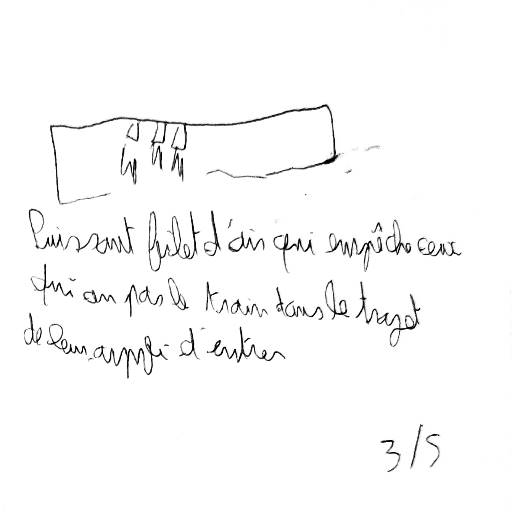 Puissant filet d'air qui empêche ceux
qui on pas le train dans le trajet
de leur appli d'entrer
3/5